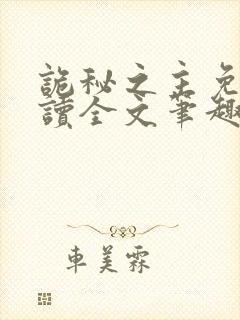 詭秘之主免
讀全文筆趣
車美霖